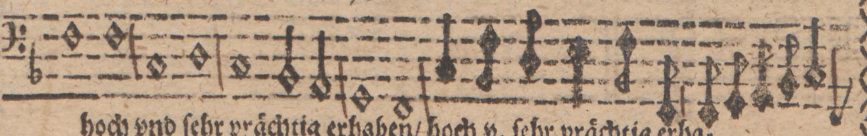 hoch vnd sehr prächtig erhaben/ hoch v. sehr prächtig erha-